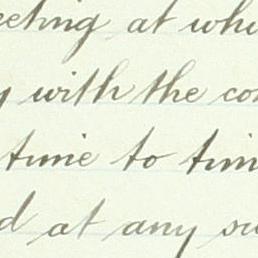 eeting at whi
y with the co
time to tim
d at any su